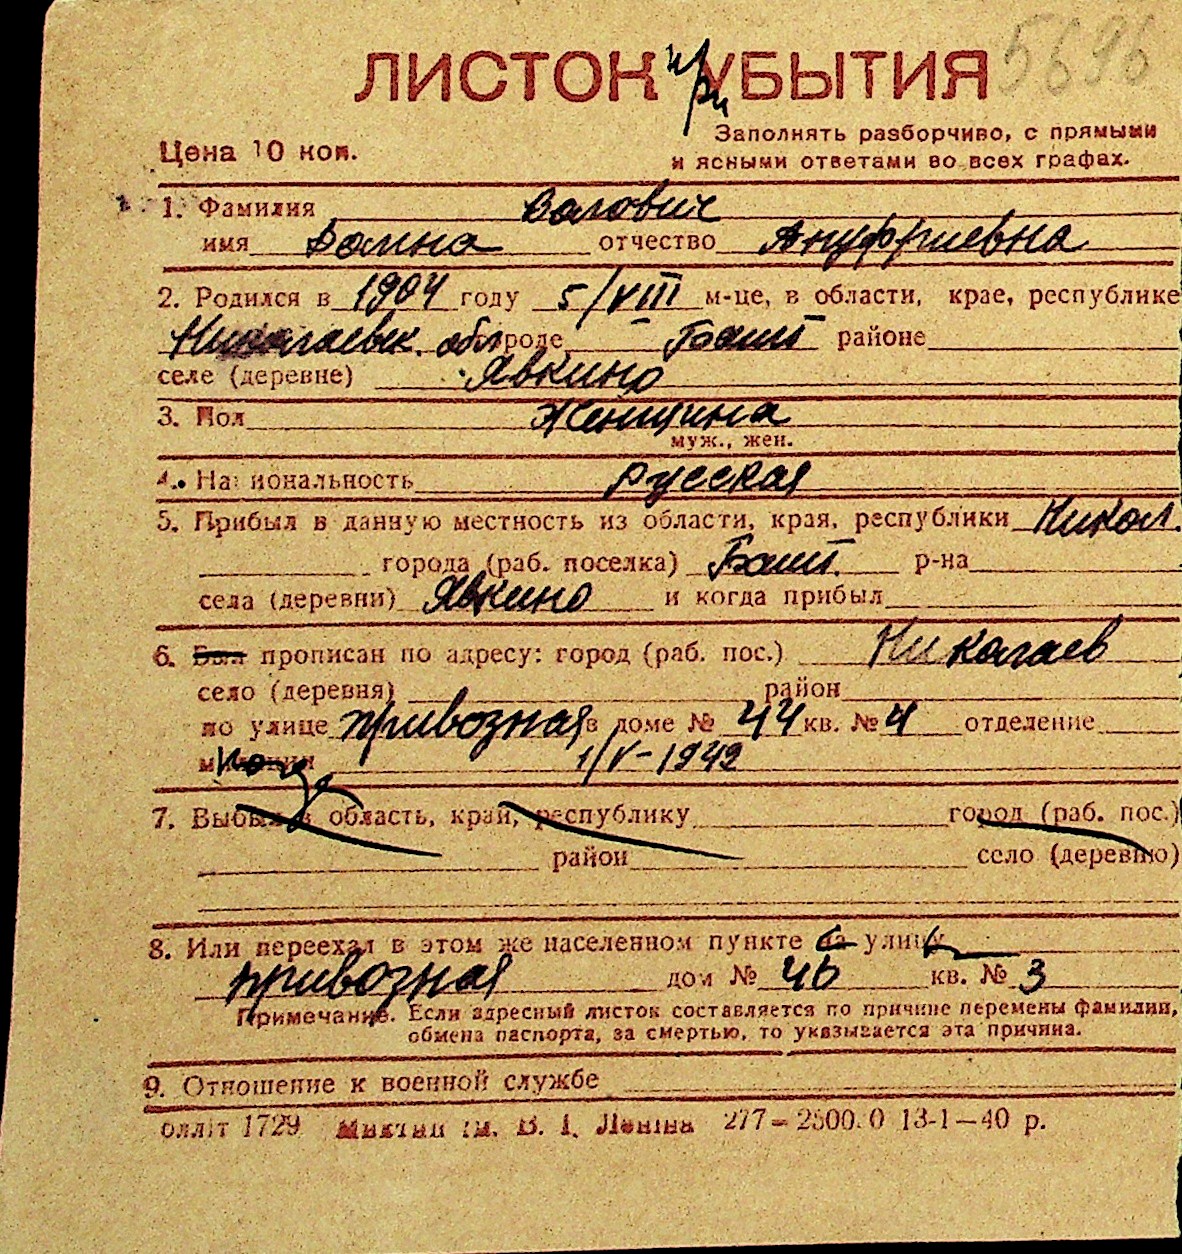 5696
ЛИСТОК при УБЫТИЯ
Цена 10 коп.
Заполнять разборчиво, с прямыми
и ясными ответами во всех графах.
1. Фамилия Валович
имя Домна отчество Ануфриевна
2. Родился в 1904 году 5/VIII м-це, в области, крае, республике
Николаевск. обл городе Башт районе
селе (деревне) Явкино
3. Пол Женщина
муж., жен.
4. Национальность русская
5. Прибыл в данную местность из области, края, республики Никол.
города (раб. поселка) Башт. р-на
села (деревни) Явкино и когда прибыл
6. Был прописан по адресу: город (раб. пос.) Николаев
село (деревня) район
по улице привозная в доме № 44 кв. № 4 отделение
милиции 1/V-1942
7. Выбыл в область, край, республику город (раб. пос.)
район село (деревню)
8. Или переехал в этом же населенном пункте на улицу
привозная дом № 46 кв. № 3
Примечание. Если адресный листок составляется по причине перемены фамилии,
обмена паспорта, за смертью, то указывается эта причина.
9. Отношение к военной службе
1729 В. І. Леніна 277—2500.0 13-1—40 р.